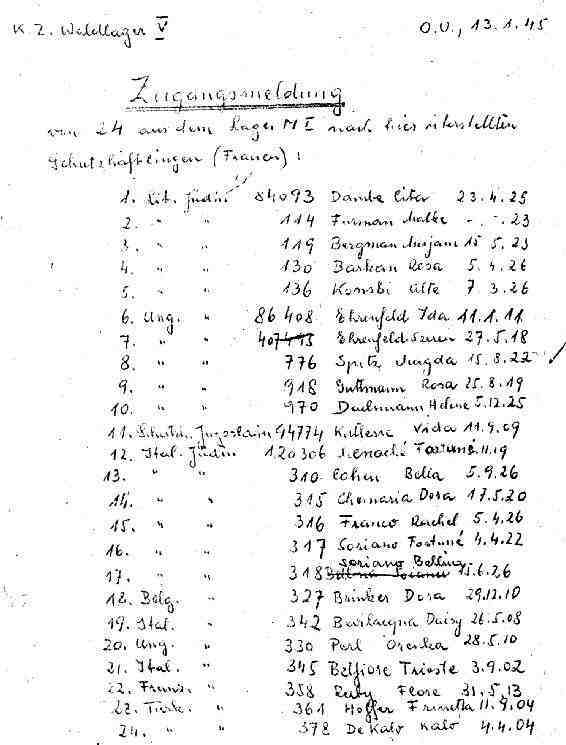 K. Z. Waldlager V O.U., 13.1.45
Zugangsmeldung
von 24 aus dem Lager M I nach hier überstellten
Schutzhäftlingen (Frauen) :
1. Lit. Jüdin 84093 23.4.25
2. " " 114 Furman Malke -.-.23
3. " " 119 Bergman Mirjam 15.5.23
4. " " 130 Barkan Rosa 5.4.26
5. " " 136 Konski 7.3.26
6. Ung. " 86408 Ehrenfeld Ida 11.1.11
7. " " Ehrenfeld Szeren 27.5.18
8. " " 776 Spitz Magda 15.8.22
9. " " 918 Guttmann Rosa 25.8.19
10. " " 970 Helene 5.12.25
11. Schutzh. Jugoslawin 94774 Vida 11.9.09
12. Ital. Jüdin 120306 Menaché Fortuné .11.19
13. " " 310 Cohen Belia 5.9.26
14. " " 315 Dora 17.5.20
15. " " 316 Franco Rachel 5.4.26
16. " " 317 Soriano Fortuné 4.4.22
Soriano Bellina
17. " " 318 15.6.26
18. Belg. " 327 Brinker Dora 29.12.10
19. Ital. " 342 Daisy 26.5.08
20. Ung. " 330 Perl 28.5.10
21. Ital. " 345 Belfiore Trieste 3.9.02
22. Franz. " 358 Ruby Flore 31.5.13
23. Türk. " 361 Hoffer 11.9.04
24. " " 378 De Kalo Kalo 4.4.04